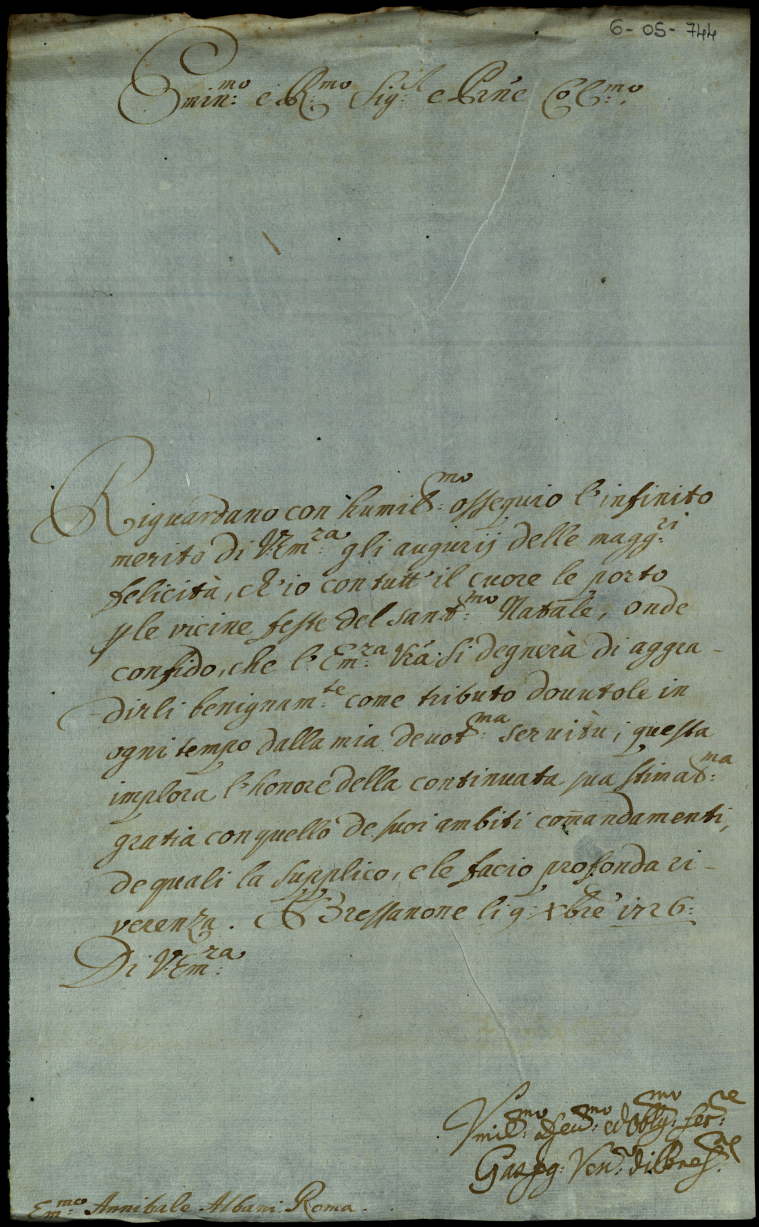 6-05-744
Emin:mo e R:mo Sig:r e Prne Col:mo
Riguardano con humil:mo ossequio l'infinito
merito di V.Em:za gli augurij delle magg:ri
felicità, ch'io con tutt'il cuore le porto
p le vicine feste del sant:mo Natale, onde
confido, che l'Em:za Vra si degnerà di aggra-
dirli benignam:te come tributo douutole in
ogni tempo dalla mia deuot:ma seruitù; questa
implora l'honore della continuata sua stimat:ma
gratia con quello de suoi ambiti comandamenti,
de quali la supplico, e le facio profonda ri-
verenza. Bressanone li 9: Xbre 1726:
Di V.Em:za
Vmil:mo Deu:mo ed Obblig:mo ser:re
Gasp Ves:o di Bres:ne
Em:mo Annibale Albani Roma.